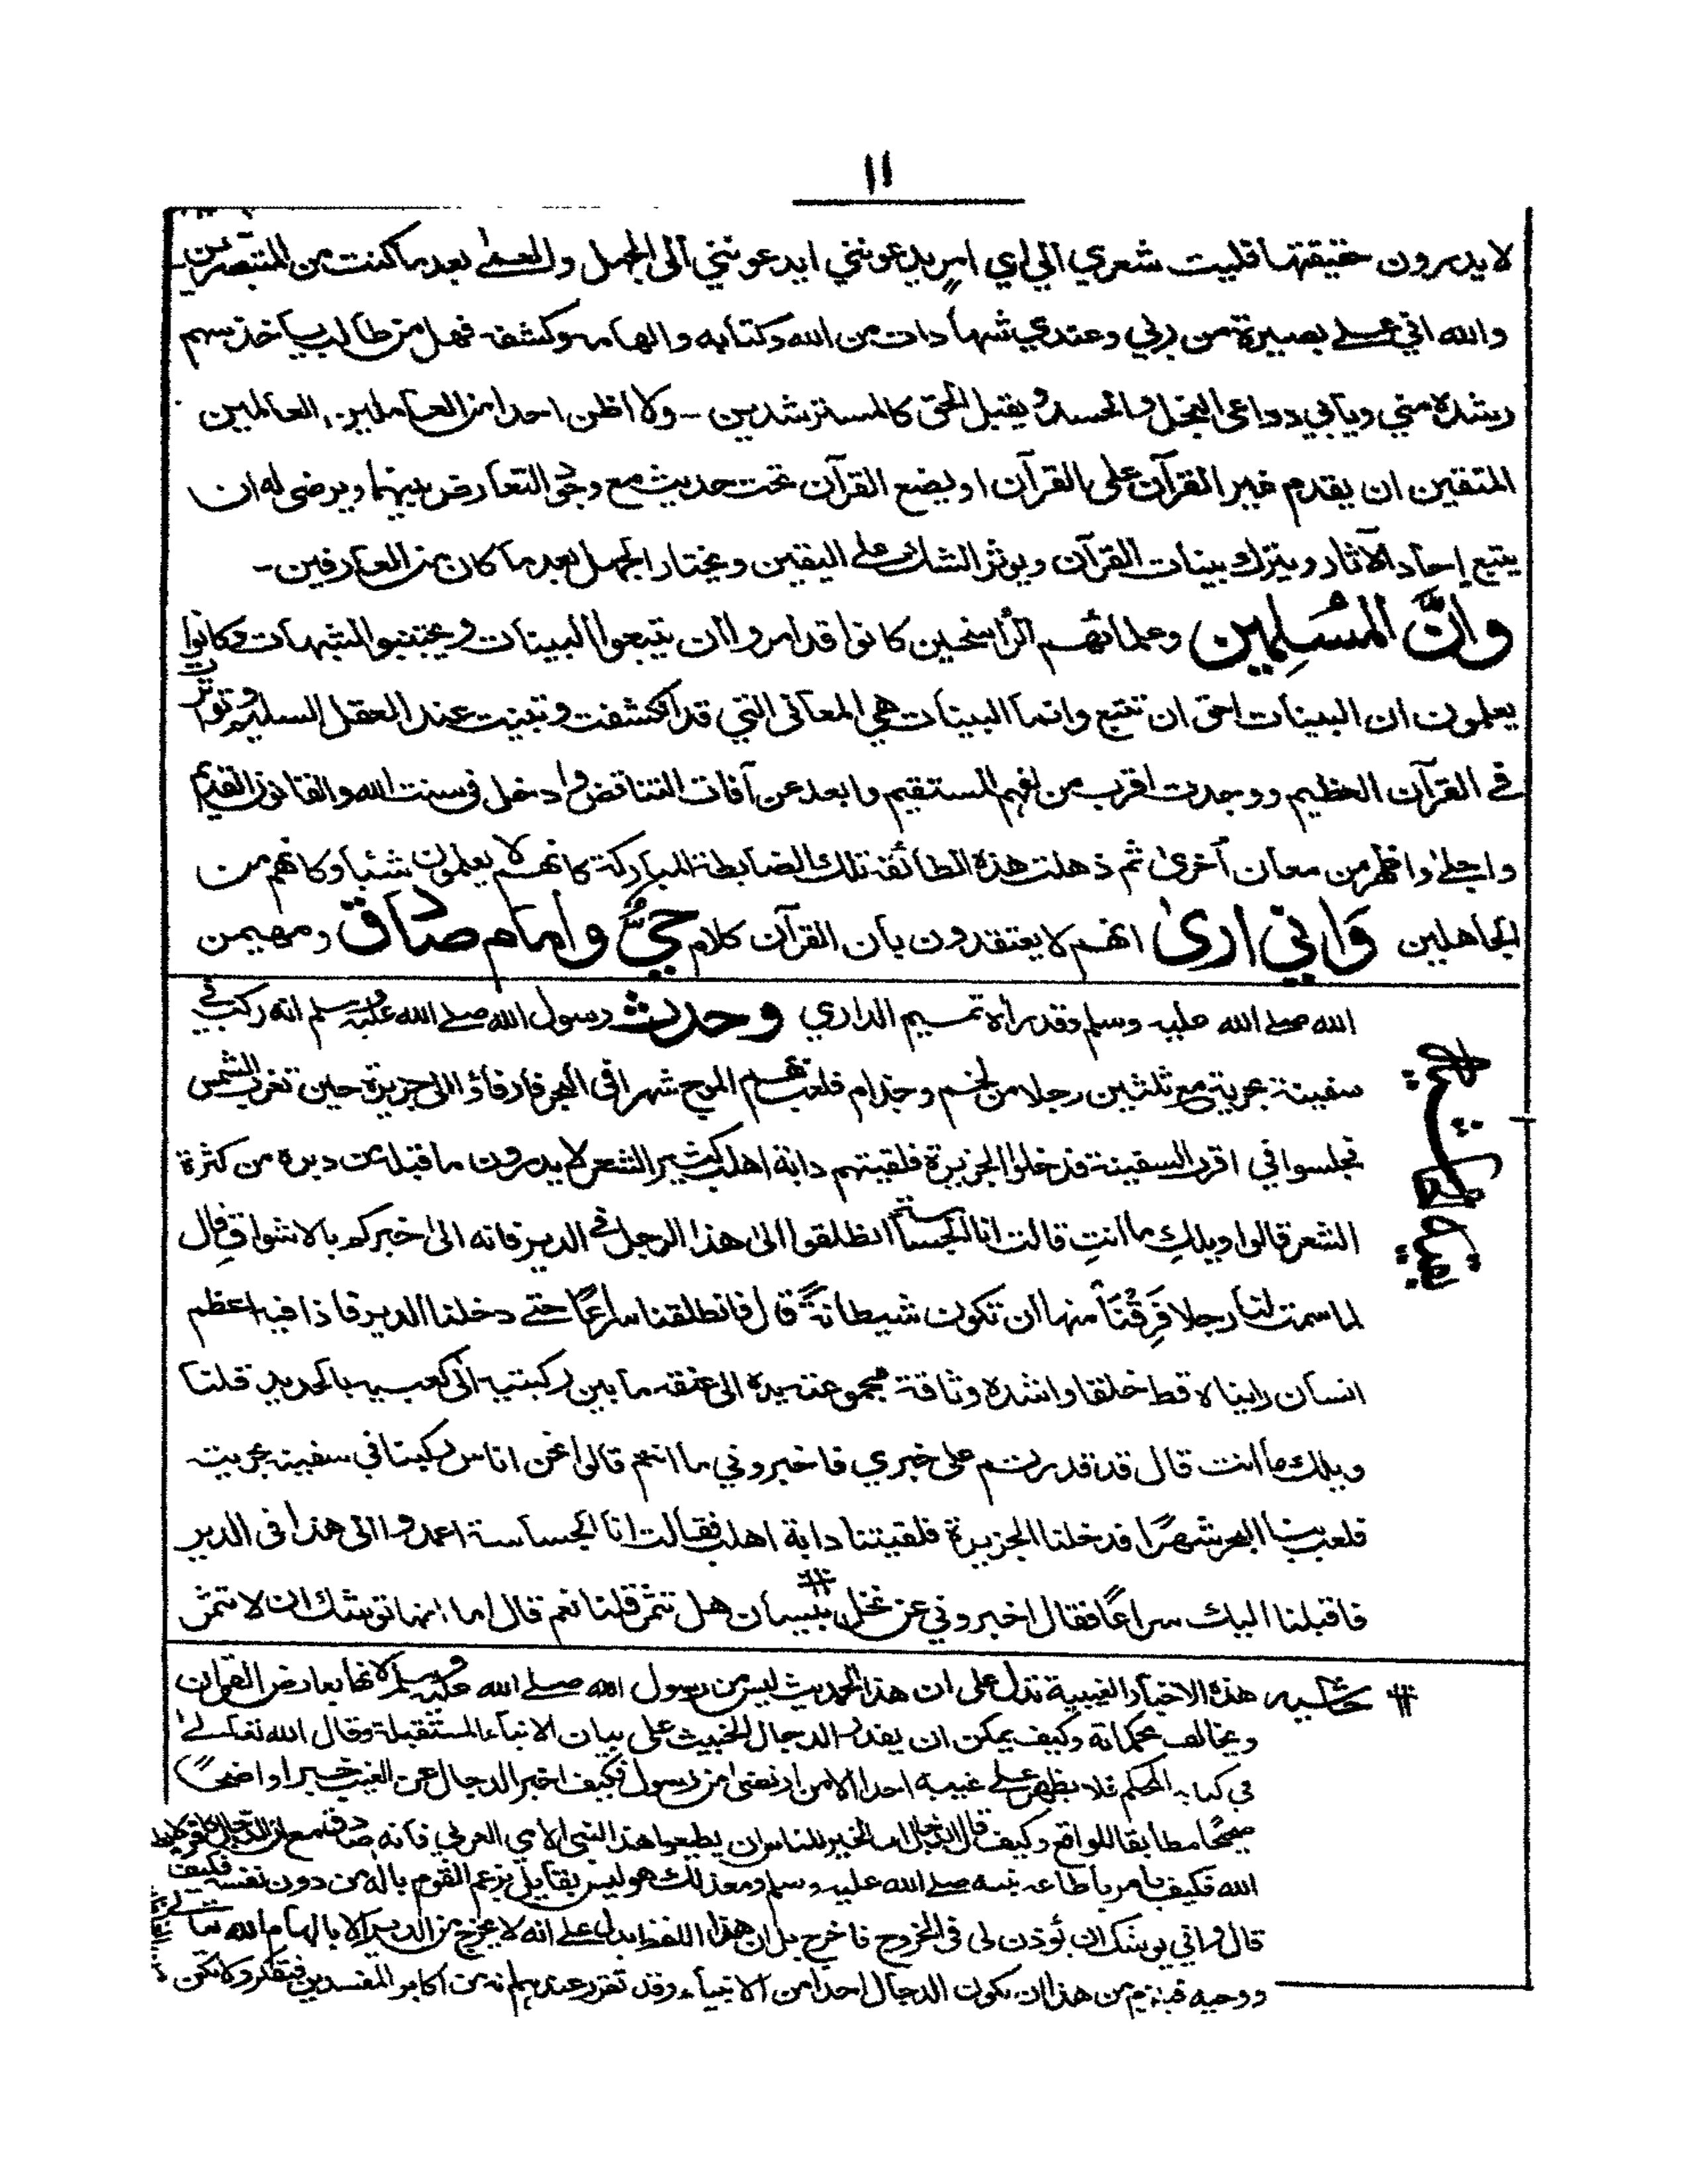 ۱۱
لا يدرون حقيقتها فليت شعري الى اي امر يدعونني ايدعونني الى الجهل والعمٰى بعد ما كنت من المتبصرين
والله اني علے بصيرة من ربي وعندي شهادات من الله وكتابه والهامه وكشفه فهل من طالب ياخذ سهم
رشده مني ويأبي دواعى البخل والحسد ويقبل الحق كالمسترشدين - ولا اظن احدا من العاملين، العالمين
المتقين ان يقدم غير القرآن على القرآن او يضع القرآن تحت حديث مع وجود التعارض بينهما ويرضى له ان
يتبع احاد الآثار ويترك بينات القرآن ويوثر الشك علے اليقين ويختار الجهل بعد ما كان من العارفين-
وانَّ المُسلِمين وعلمائهم الراسخين كانوا قد امروا ان يتبعوا البينات ويجتنبوا الشبهات وكانوا
يعلمون ان البينات احق ان تتبع وانما البينات هي المعانى التي قد انكشفت وتبينت عند العقل السليم وتواترت
فے القرآن العظيم ووجدت اقرب من لفهم المستقيم وابعد عن آفات التناقض وادخل في سنت الله والقانون القديم
واجلےٰ واظهر من معان آخرىٰ ثم ذهلت هذه الطائفة تلك الضابطة المباركة كانهم لا يعلمون شيئا وكانهم من
الجاهلين وَاني ارىٰ انهم لا يعتقدون بان القرآن كلام حيٌّ وامام صادق ومهيمن
الله صلے الله عليه وسلم وقد رأه تميم الداري وحدث رسول الله صلے الله عليه وسلم انه ركب في
سفينة بحرية مع ثلثين رجلا من لخم وجذام فلعب بهم الموج شهرا فى البحر فارفاؤا الى جزيرة حين تغرب الشمس
فجلسوا في اقرب السفينة فدخلوا الجزيرة فلقيتهم دابة اهلب كثير الشعر لا يدرون ما قبله من دبره من كثرة
الشعر قالوا ويلكِ ما انتِ قالت انا الجساسة انطلقوا الىٰ هذا الرجل فے الدير فانه الىٰ خبركم بالاشواق قال
لما سمت لنا رجلا فَرِقْنَا منها ان تكون شيطانةً قال فانطلقنا سراعًا حتے دخلنا الدير فاذا فيه اعظم
انسان رايناه قط خلقا واشده وثاقة مجموعة يده الى عنقه ما بين ركبتيه الى كعبيه بالحديد قلنا
ويلك ما انت قال قد قدرتم على خبري فاخبروني ما انتم قالوا نحن اناس ركبنا في سفينة بحرية
فلعب بنا البحر شهرًا فدخلنا الجزيرة فلقيتنا دابة اهلب فقالت انا الجساسة اعمدوا الى هذا فى الدير
فاقبلنا اليك سراعًا فقال اخبروني عن نخل بيسان # هل تثمر قلنا نعم قال اما انها توشك ان لا تثمر
# حاشيه هذه الاخبار الغيبية تدل على ان هذا الحديث ليس من رسول الله صلے الله عليه وسلم لانها يعارض القرآن
ويخالف محكماته وكيف يمكن ان يقدر الدجال الخبيث على بيان الانباء المستقبلة وقال الله تعالےٰ
في كتابه المحكم فلا يظهر علے غيبه احدا الا من ارتضى من رسول فكيف اخبر الدجال عن الغيب خبرا واضحًا
صحيحًا مطابقا للواقع وكيف قال الدجال ان الخير للناس ان يطيعوا هذا النبى الامي العربي فانه صادق مع ان الدجال كافر
الله فكيف يامر باطاعة نبيه صلے الله عليه وسلم ومع ذلك هو ليس بقايل بزعم القوم باله من دون نفسه فكيف
قال واني يوشك ان يؤذن لى فى الخروج فاخرج بل ان هذا اللفظ يدل علے انه لا يخرج من الدير الا بالهام الله
ووحيه فيلزم من هذا ان يكون الدجال احدا من الانبياء وقد تقرر عندهم انه من اكابر المفسدين فتفكر ولا تكن